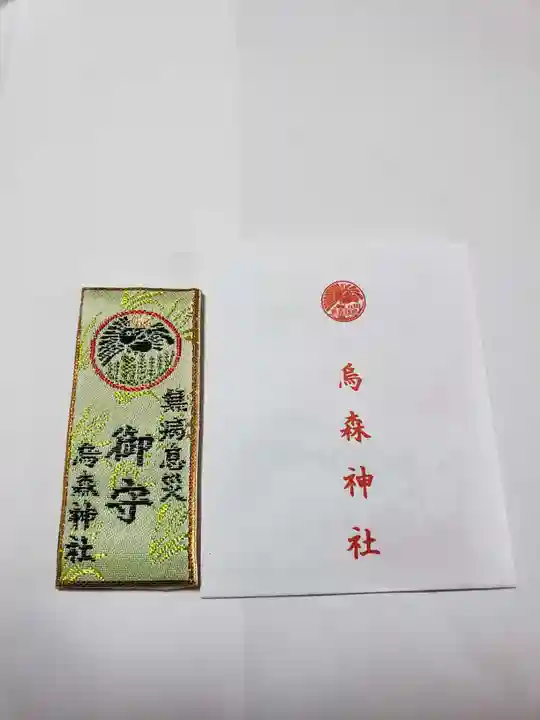 無病息災
御守
烏森神社
烏森神社